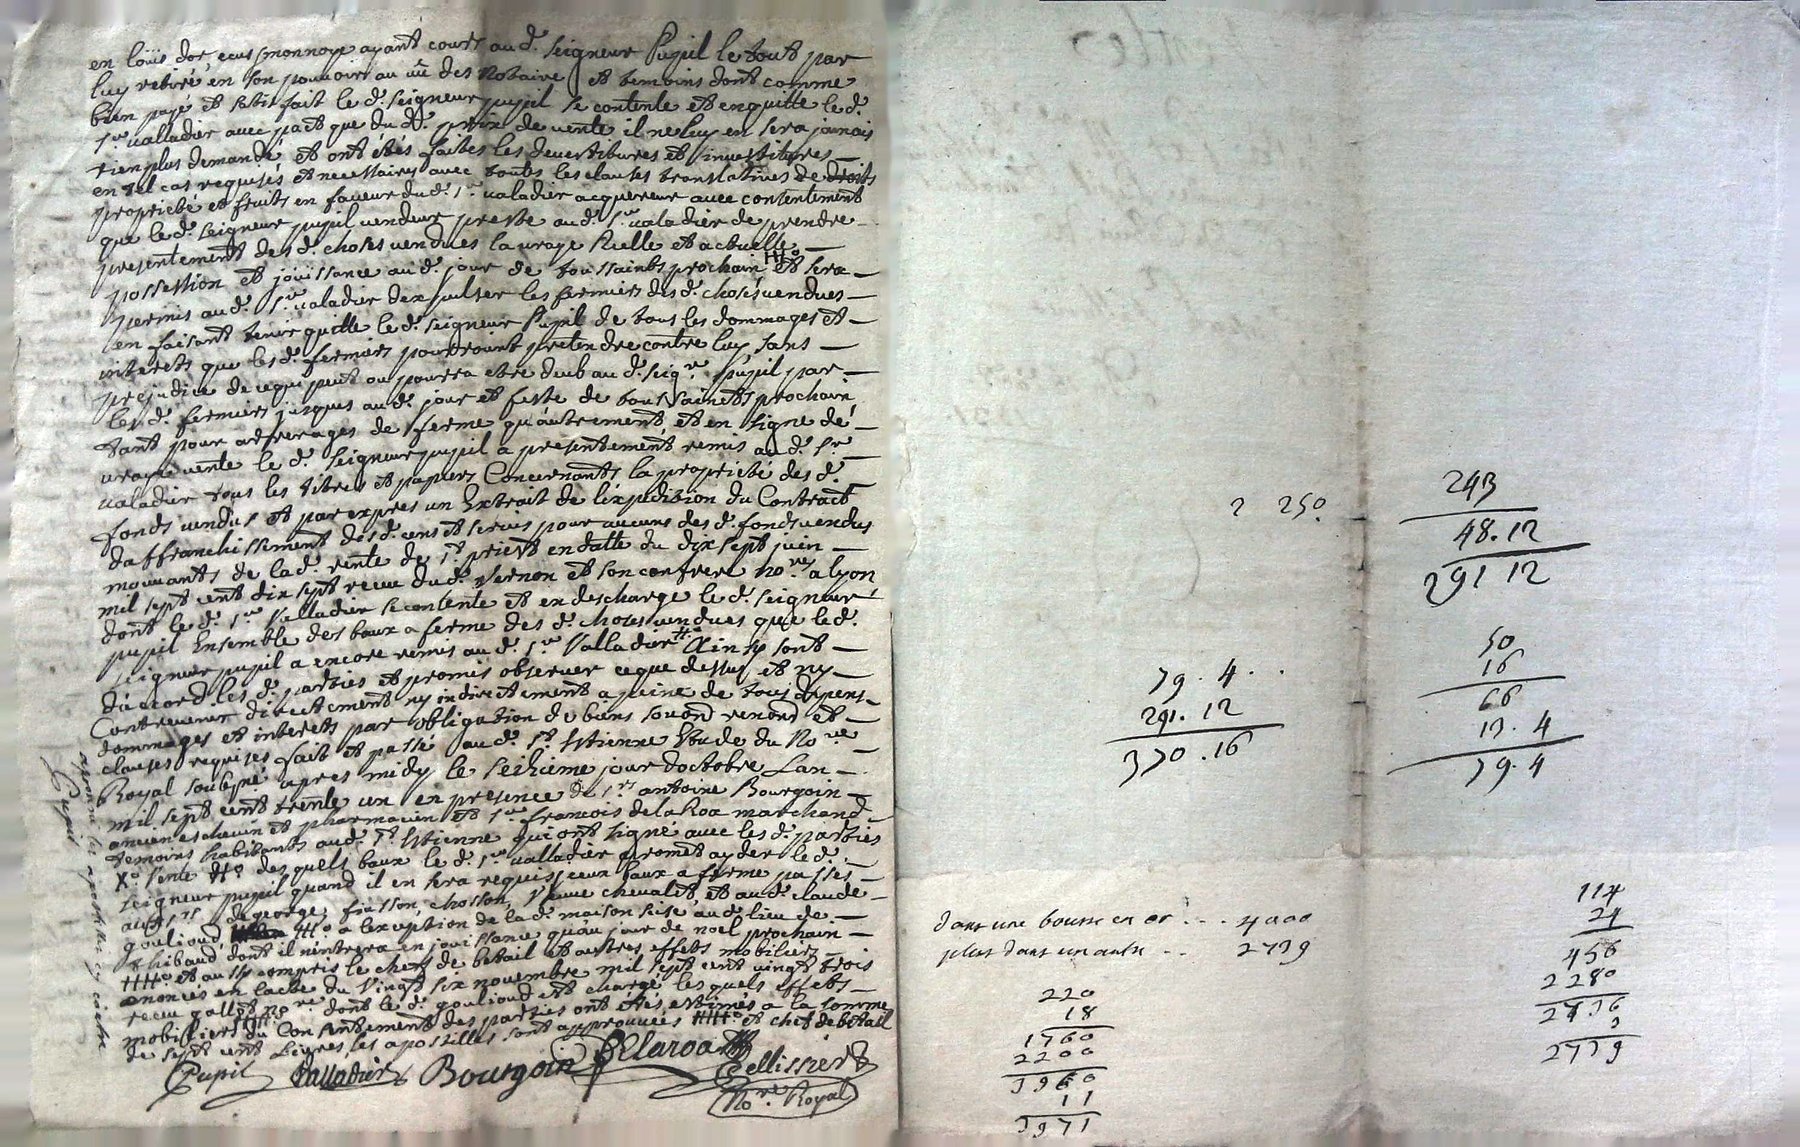 en loüis dor, ecus monnoye ayant cours au d. seigneur Pupil le tout par
luy retiré en son pouvoir au vû des Notaire et temoins dont comme
bien payé et satisfait le d. seigneur pupil se contente et en quitte le d.
Sr. valadier avec pact que du dt. prix de vente il ne luy en sera jamais
rien plus demandé et ont étés faites les devestitures et investitures
en tel cas requises et necessaires avec toutes les clauses translatives de droits
proprieté et fruits en faveur du d. Sr. valadier acquereur avec contentement
que le d. seigneur pupil vendeur preste au d. Sr. valadier de prendre
presentement des d. choses vendues la vraye reelle et actuelle
possession et joüissance au d. jour de toussaints prochain et sera
permis au d. Sr. valadier dexpulser les fermiers des d. choses vendues
en faisant tenir quitte le d. seigneur Pupil de tous les dommages et
interets que les d. fermiers pourroint pretendre contre luy sans
prejudice de ce qui peut ou pourra etre deub au d. seigr. pupil par
les d. fermiers jusques au d. jour et feste de toussaints prochain
tant pour arrerages de ferme qu'autrement, et en signe de
vraye vente le d. seigneur pupil a presentement remis au d. Sr.
valadier tous les titres et papiers Concernants la proprieté des d.
fonds vendus et par expres un Extrait de l'expedition du Contract
daffranchissement des d. cens et servis pour aucuns des d. fonds vendus
mouvants de la d. rente de St. priest en datte du dix sept juin
mil sept cent dix sept receu du d. Vernon et son confrere nores. a lyon
dont le d. Sr. Valladier se contente et en descharge le d. seigneur
pupil Ensemble des baux a ferme des d. choses vendues que le d.
seigneur pupil a encore remis au d. Sr. Valladier Ainsy sont
d'accord les d. parties et promis observer ce que dessus et ny
Contrevenir directement ny indirectement a peine de tous depens
dommages et interets par obligation de biens soub renond et
clauses requises fait et passé au d. St. Estienne Etude du Nore.
Royal soubsné apres midy le seizieme jour doctobre Lan
mil sept cent trente un en presence de Srs antoine Bourgoin
ancien eschevin et pharmacien et Sr. francois delaRoa marchand
temoins habitants au d. St. Estienne qui ont signé avec les d. parties
des quels baux le d. Sr. valladier promet ayder le d.
seigneur pupil quand il en sera requis, ceux baux a ferme passés
aux Srs. degeorge, frasson, chosson, veuve chevalet, et au d. claude
goulioud a lexception de la d. maison sise au d. lieu de
thibaud dont il nentrera en joüissance qu'au jour de noel prochain
et aussy compris le chef de betail et autres effets mobiliers
enoncés en lacte du vingt six novembre mil sept cent vingt trois
receu gallot nore. dont le d. goulioud est chargé les quels effets
mobiliers du Consentement des parties ont étés estimés a la somme
de sept cent Livres, les apostilles sont approuvées et chef de betail
Pupil Valladier Bourgoin Delaroa
Pellissier
Nore. Royal
Pupil
2 250.
243
48. 12
291 12
50
16
66
13. 4
79. 4
79. 4.
291. 12
370. 16
dans une bourse en or . . . 4000
plus dans un autre . . 2739
220
18
1760
2200
3960
11
3971
114
24
456
2280
2736
3
2739